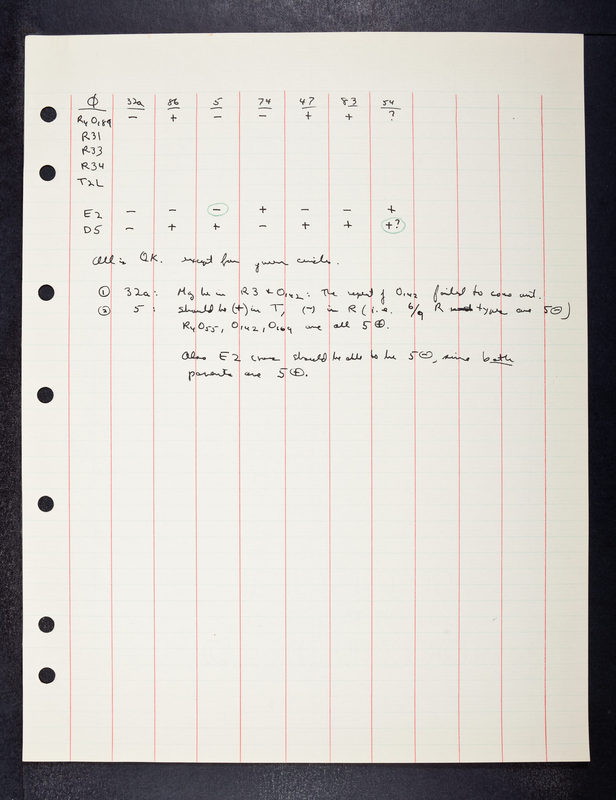 Φ 32a 86 5 74 47 83 54
R4 0,189 − + − − + + ?
R31
R33
R34
T2L
E2 − − − + − − +
D5 − + + − + + +?
All is OK. except for green circles.
① 32a: May be in R3 + 0,142: The repeat of 0,142 failed to come out.
② 5: should be (+) in T, (−) in R (i.e. 6/9 R type are 5⊖)
R4 055, 0,142, 0,169 are all 5⊕.
Also E2 should be able to be 5⊖, since both
parents are 5⊕.